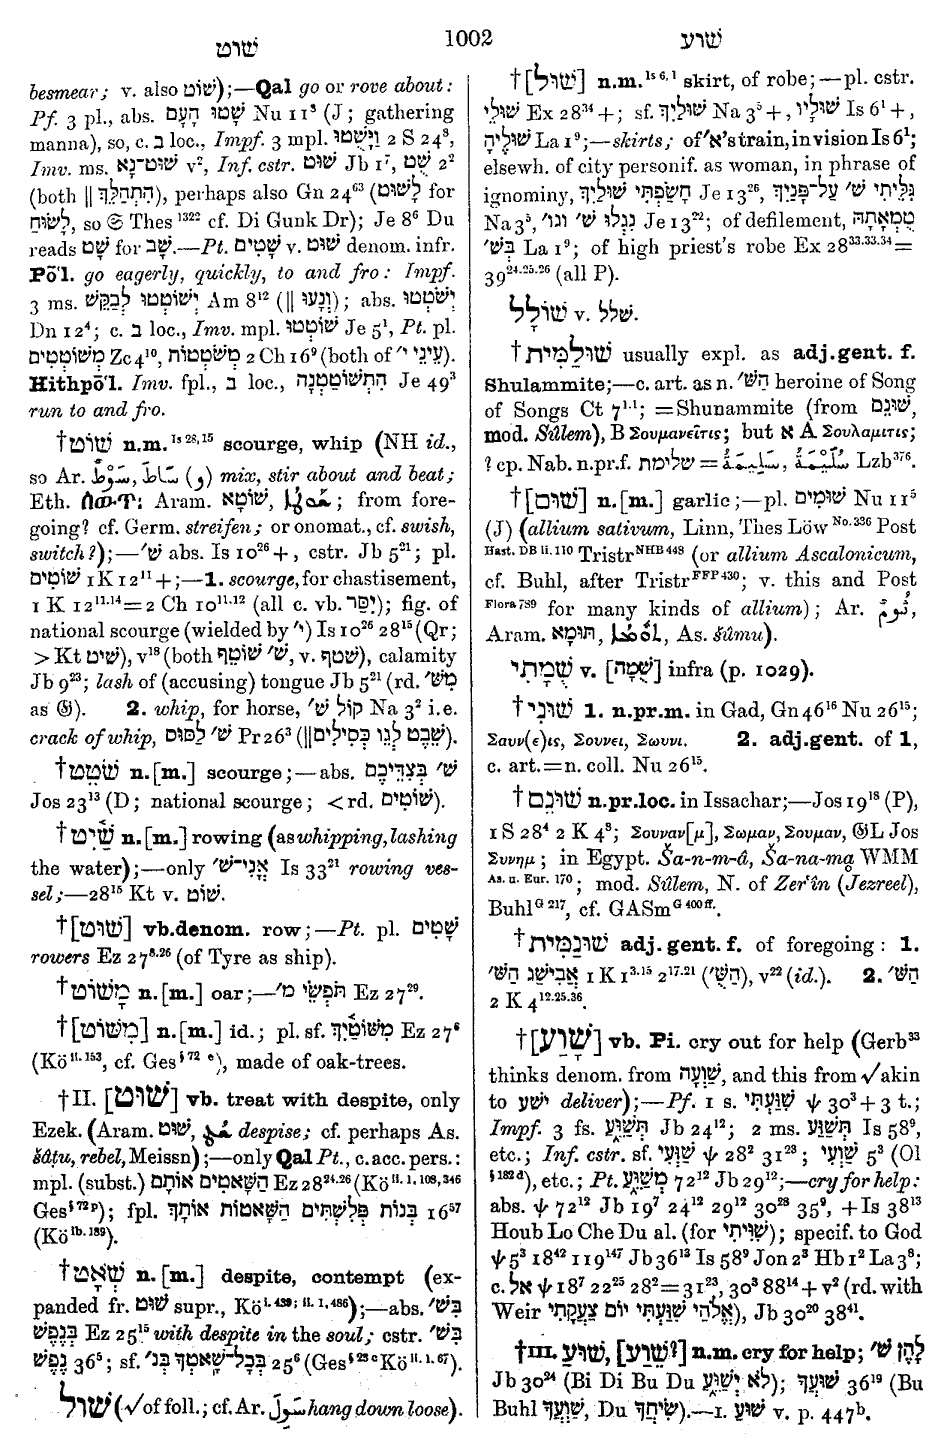 שׁוט 1002 שׁוע
besmear; v. also שׁוֹט);—Qal go or rove about:
Pf. 3 pl., abs. שָׁטוּ הָעָם Nu 11⁸ (J; gathering
manna), so, c. ב loc., Impf. 3 mpl. וַיָּשֻׁטוּ 2 S 24⁸,
Imv. ms. שׁוּט־נָא v², Inf. cstr. שׁוּט Jb 1⁷, שֻׁט 2²
(both ‖ הִתְהַלֵּךְ), perhaps also Gn 24⁶³ (לָשׁוּט for
לָשׂוּחַ, so 𝔖 Thes ¹³²² cf. Di Gunk Dr); Je 8⁶ Du
reads שָׁט for שָׁב.—Pt. שָׁטִים v. שׁוּט denom. infr.
Pō‛l. go eagerly, quickly, to and fro: Impf.
3 ms. יְשׁוֹטְטוּ לְבַקֵּשׁ Am 8¹² (‖ וְנָעוּ); abs. יְשֹׁטְטוּ
Dn 12⁴; c. ב loc., Imv. mpl. שׁוֹטְטוּ Je 5¹, Pt. pl.
מְשׁוֹטְטִים Zc 4¹⁰, מְשֹׁטְטוֹת 2 Ch 16⁹ (both of עֵינֵי י׳).
Hithpō‛l. Imv. fpl., ב loc., הִתְשׁוֹטַטְנָה Je 49³
run to and fro.
†שׁוֹט n.m. Is 28, 15 scourge, whip (NH id.,
so Ar. سَوْط, سَاطَ (و) mix, stir about and beat;
Eth. Aram. שׁוֹטָא; from fore-
going? cf. Germ. streifen; or onomat., cf. swish,
switch?);—שׁ׳ abs. Is 10²⁶ +, cstr. Jb 5²¹; pl.
שׁוֹטִים 1 K 12¹¹ +;—1. scourge, for chastisement,
1 K 12¹¹·¹⁴ = 2 Ch 10¹¹·¹² (all c. vb. יִסַּר); fig. of
national scourge (wielded by י׳) Is 10²⁶ 28¹⁵ (Qr;
> Kt שׁיט), v¹⁸ (both שׁ׳ שׁוֹטֵף, v. שׁטף), calamity
Jb 9²³; lash of (accusing) tongue Jb 5²¹ (rd. מִשּׁ׳
as 𝔊). 2. whip, for horse, קוֹל שׁ׳ Na 3² i.e.
crack of whip, שׁ׳ לַסּוּס Pr 26³ (‖ שֵׁבֶט לְגֵו כְּסִילִים).
†שֹׁטֵט n.[m.] scourge;—abs. שׁ׳ בְּצִדֵּיכֶם
Jos 23¹³ (D; national scourge; < rd. שׁוֹטִים).
†שַׁיִט n.[m.] rowing (as whipping, lashing
the water);—only אֳנִי־שׁ׳ Is 33²¹ rowing ves-
sel;—28¹⁵ Kt v. שׁוֹט.
†[שׁוּט] vb.denom. row;—Pt. pl. שָׁטִים
rowers Ez 27⁸·²⁶ (of Tyre as ship).
†מָשׁוֹט n.[m.] oar;—תֹּפְשֵׂי מ׳ Ez 27²⁹.
†[מִשּׁוֹט] n.[m.] id.; pl. sf. מִשּׁוֹטַיִךְ Ez 27⁶
(Kö ii. 153, cf. Ges § 72 e), made of oak-trees.
†II. [שׁוּט] vb. treat with despite, only
Ezek. (Aram. שׁוּט, despise; cf. perhaps As.
šâṭu, rebel, Meissn);—only Qal Pt., c. acc. pers.:
mpl. (subst.) הַשָּׁאטִים אוֹתָם Ez 28²⁴·²⁶ (Kö ii. 1, 108, 346
Ges § 72 p); fpl. בְּנוֹת פְּלִשְׁתִּים הַשָּׁאטוֹת אוֹתָךְ 16⁵⁷
(Kö ib. 189).
†שְׁאָט n.[m.] despite, contempt (ex-
panded fr. שׁוּט supr., Kö i. 439; ii. 1, 486);—abs. בִּשְׁ׳
בְּנֶפֶשׁ Ez 25¹⁵ with despite in the soul; cstr. בִּשְׁ׳
נֶפֶשׁ 36⁵; sf. בְּכָל־שָׁאטְךָ בְּנ׳ 25⁶ (Ges § 23 c Kö ii. 1. 67).
שׁול (√ of foll.; cf. Ar. سَوِلَ hang down loose).
†[שׁוּל] n.m. Is 6, 1 skirt, of robe;—pl. cstr.
שׁוּלֵי Ex 28³⁴ +; sf. שׁוּלַיִךְ Na 3⁵ +, שׁוּלָיו Is 6¹ +,
שׁוּלֶיהָ La 1⁹;—skirts; of א׳'s train, in vision Is 6¹;
elsewh. of city personif. as woman, in phrase of
ignominy, חָשַׂפְתִּי שׁוּלַיִךְ Je 13²⁶, גִּלֵּיתִי שׁ׳ עַל־פָּנָיִךְ
Na 3⁵, נִגְלוּ שׁ׳ וגו׳ Je 13²²; of defilement, טֻמְאָתָהּ
בְּשׁ׳ La 1⁹; of high priest's robe Ex 28³³·³³·³⁴ =
39²⁴·²⁵·²⁶ (all P).
שׁוֹלָל v. שׁלל.
†שׁוּלַמִּית usually expl. as adj.gent. f.
Shulammite;—c. art. as n. הַשּׁ׳ heroine of Song
of Songs Ct 7¹·¹; = Shunammite (from שׁוּנֵם,
mod. Sûlem), B Σουμανεῖτις; but א A Σουλαμιτις;
? cp. Nab. n.pr.f. שלימת = سُلَيْمَة, سَلِيمَة Lzb³⁷⁶.
†[שׁוּם] n.[m.] garlic;—pl. שׁוּמִים Nu 11⁵
(J) (allium sativum, Linn, Thes Löw No. 336 Post
Hast. DB ii. 110 Tristr NHB 448 (or allium Ascalonicum,
cf. Buhl, after Tristr FFP 430; v. this and Post
Flora 789 for many kinds of allium); Ar. ثُومٌ,
Aram. תּוּמָא, As. šûmu).
שֻׁמָתִי v. [שֻׁמָה] infra (p. 1029).
†שׁוּנִי 1. n.pr.m. in Gad, Gn 46¹⁶ Nu 26¹⁵;
Σαυν(ε)ις, Σουνει, Σωυνι. 2. adj.gent. of 1,
c. art. = n. coll. Nu 26¹⁵.
†שׁוּנֵם n.pr.loc. in Issachar;—Jos 19¹⁸ (P),
1 S 28⁴ 2 K 4⁸; Σουναν[μ], Σωμαν, Σουμαν, 𝔊L Jos
Συνημ; in Egypt. Ša-n-m-â, Ša-na-ma WMM
As. u. Eur. 170; mod. Sûlem, N. of Zer‛în (Jezreel),
Buhl G 217, cf. GASm G 400 ff.
†שׁוּנַמִּית adj. gent. f. of foregoing: 1.
אֲבִישַׁג הַשּׁ׳ 1 K 1³·¹⁵ 2¹⁷·²¹ (הַשֻּׁ׳), v²² (id.). 2. הַשּׁ׳
2 K 4¹²·²⁵·³⁶.
†[שָׁוַע] vb. Pi. cry out for help (Gerb³³
thinks denom. from שַׁוְעָה, and this from √ akin
to ישׁע deliver);—Pf. 1 s. שִׁוַּעְתִּי ψ 30³ + 3 t.;
Impf. 3 fs. תְּשַׁוֵּעַ Jb 24¹²; 2 ms. תְּשַׁוַּע Is 58⁹,
etc.; Inf. cstr. sf. שַׁוְּעִי ψ 28² 31²³; שַׁוְעִי 5³ (Ol
§ 182 d), etc.; Pt. מְשַׁוֵּעַ 72¹² Jb 29¹²;—cry for help:
abs. ψ 72¹² Jb 19⁷ 24¹² 29¹² 30²⁸ 35⁹, + Is 38¹³
Houb Lo Che Du al. (for שִׁוִּיתִי); specif. to God
ψ 5³ 18⁴² 119¹⁴⁷ Jb 36¹³ Is 58⁹ Jon 2³ Hb 1² La 3⁸;
c. אֶל ψ 18⁷ 22²⁵ 28² = 31²³, 30³ 88¹⁴ + v² (rd. with
Weir אֱלֹהַי שִׁוַּעְתִּי יוֹם צָעַקְתִּי), Jb 30²⁰ 38⁴¹.
†III. שׁוּעַ, [שֶׁוַע?] n.m. cry for help; לָהֶן שׁ׳
Jb 30²⁴ (Bi Di Bu Du לֹא יְשַׁוֵּעַ); שׁוּעֲךָ 36¹⁹ (Bu
Buhl שַׁוְעֲךָ, Du שִׂיחֲךָ).—I. שׁוּעַ v. p. 447ᵇ.